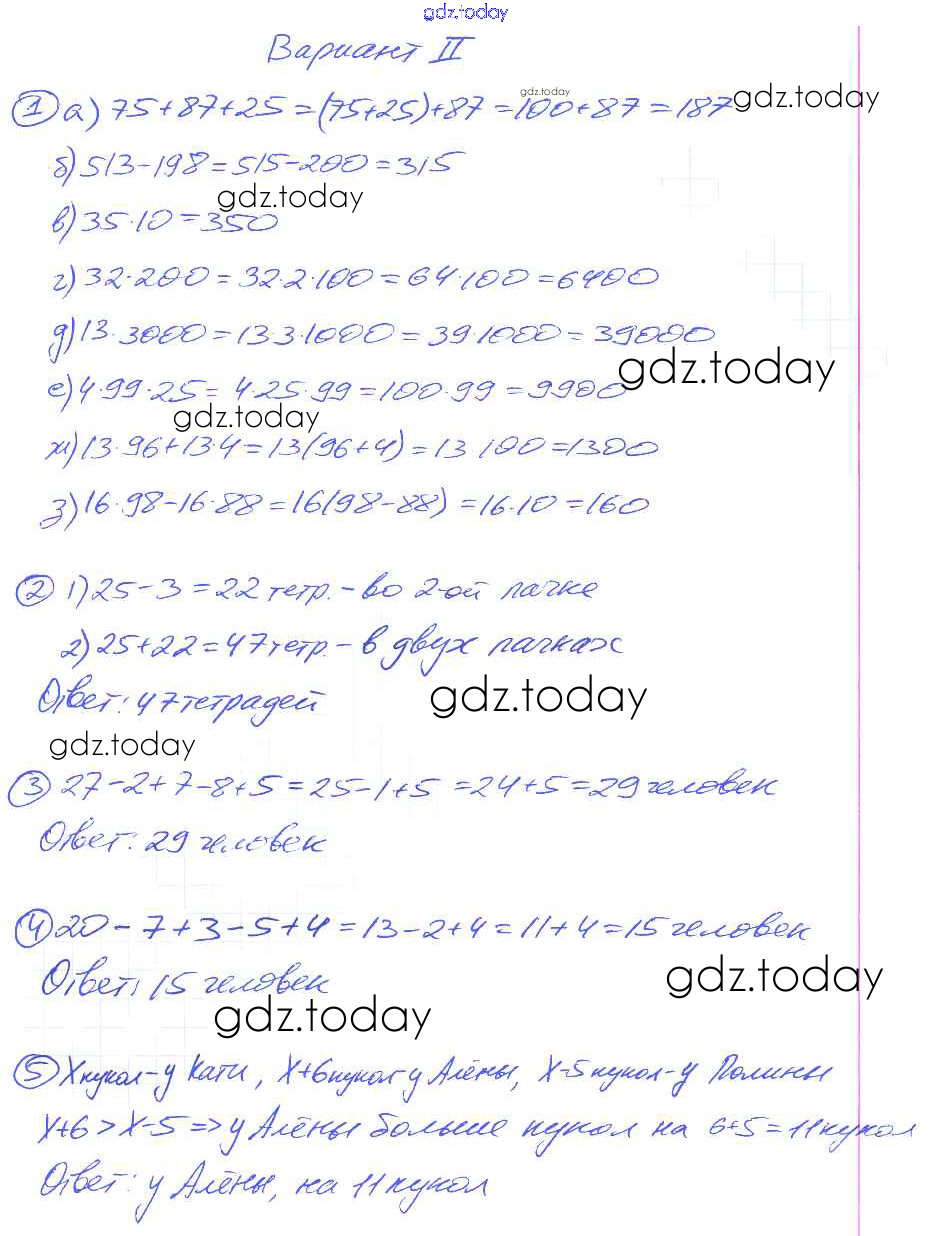 gdz.today
Вариант II
① а) 75+87+25=(75+25)+87=100+87=187
gdz.today
gdz.today
б) 513-198=515-200=315
gdz.today
в) 35·10=350
г) 32·200=32·2·100=64·100=6400
д) 13·3000=13·3·1000=39·1000=39000
gdz.today
е) 4·99·25=4·25·99=100·99=9900
gdz.today
ж) 13·96+13·4=13(96+4)=13·100=1300
з) 16·98-16·88=16(98-88)=16·10=160
② 1) 25-3=22 тетр.-во 2-ой пачке
2) 25+22=47 тетр.-в двух пачках
Ответ: 47 тетрадей
gdz.today
gdz.today
③ 27-2+7-8+5=25-1+5=24+5=29 человек
Ответ: 29 человек
④ 20-7+3-5+4=13-2+4=11+4=15 человек
Ответ: 15 человек
gdz.today
gdz.today
⑤ X кукол-у Кати, X+6 кукол у Алёны, X-5 кукол-у Полины
X+6>X-5=>у Алёны больше кукол на 6+5=11 кукол
Ответ: у Алёны, на 11 кукол